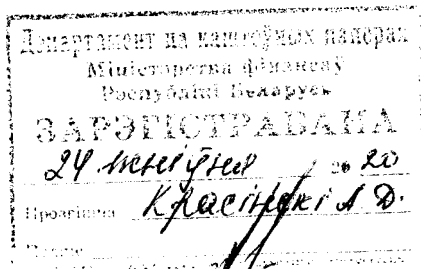 Дэпартамент па каштоўных паперах
Міністэрства фінансаў
Рэспублікі Беларусь
ЗАРЭГІСТРАВАНА
24 жніўня 2020
Прозвішча Красінскі А Д.